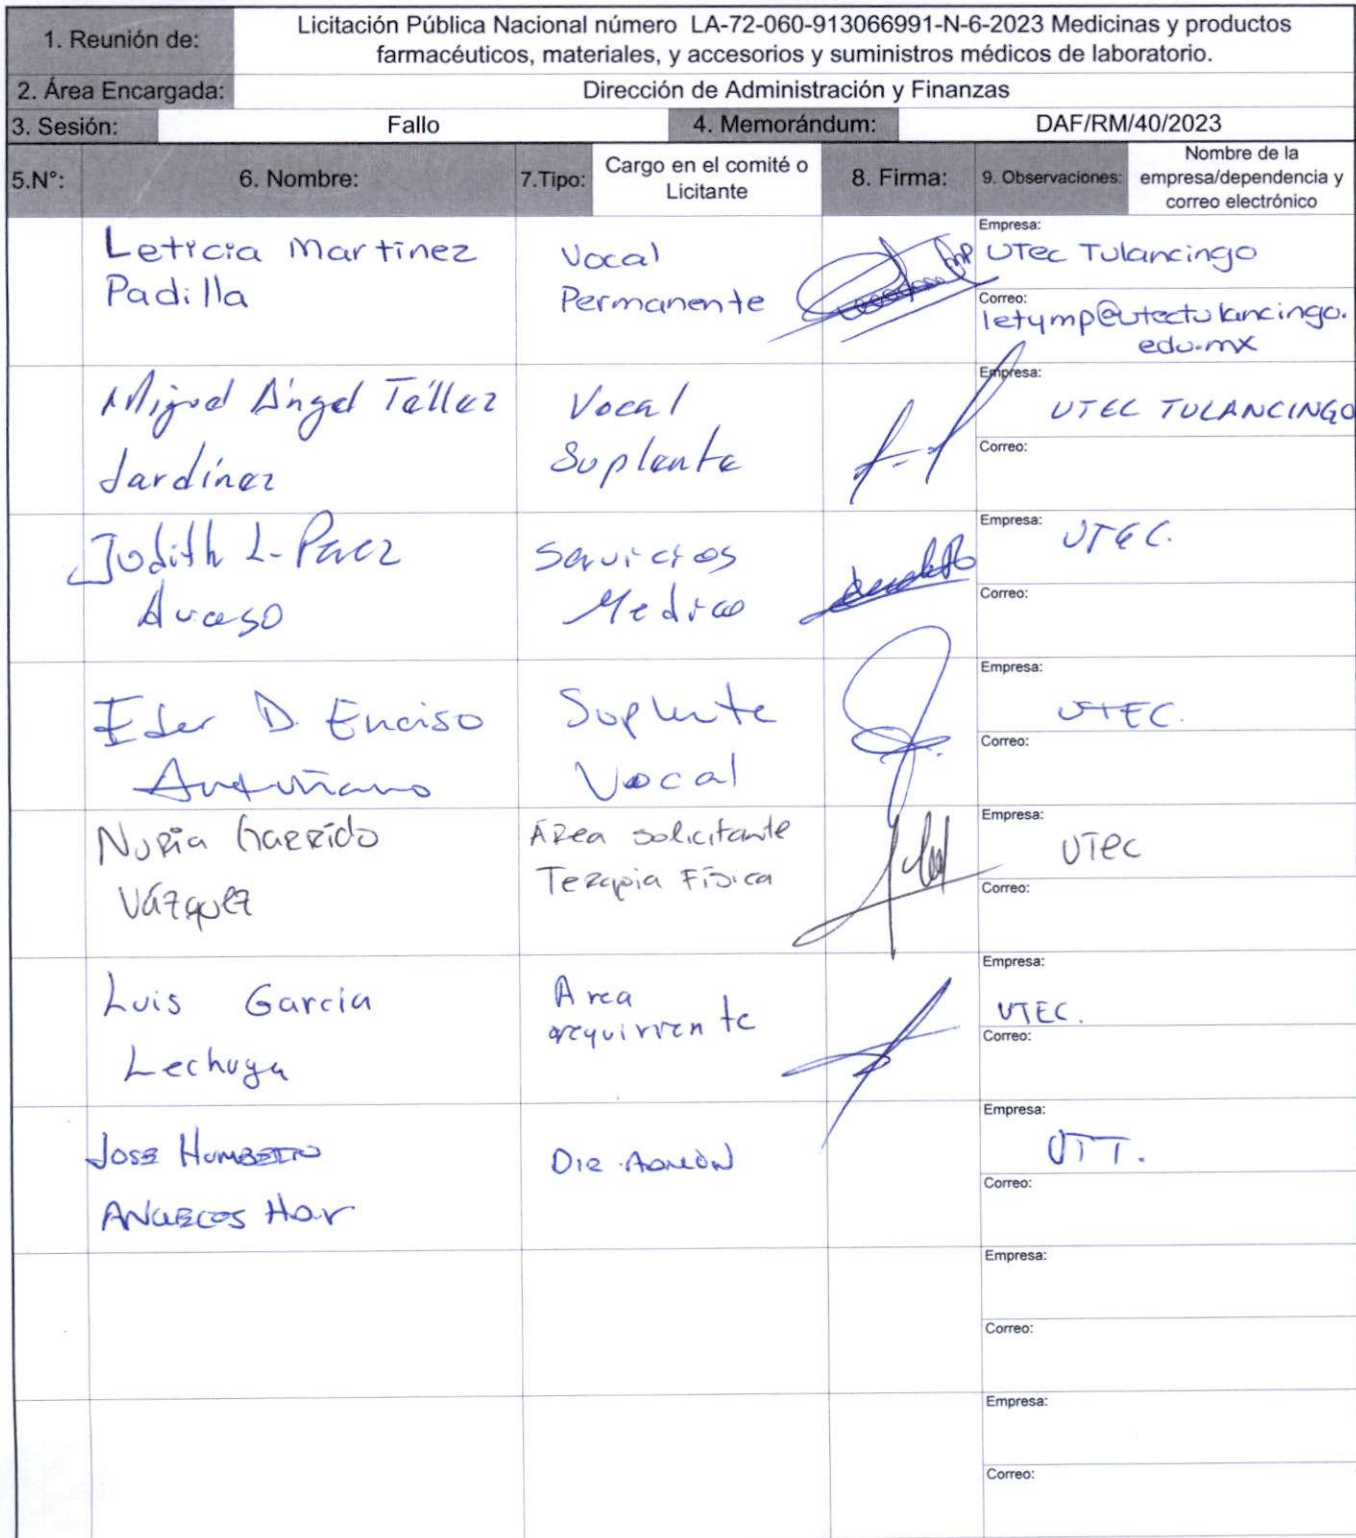 1. Reunión de:
Licitación Pública Nacional número LA-72-060-913066991-N-6-2023 Medicinas y productos
farmacéuticos, materiales, y accesorios y suministros médicos de laboratorio.
2. Área Encargada:
Dirección de Administración y Finanzas
3. Sesión:
Fallo
4. Memorándum:
DAF/RM/40/2023
5.N°:
6. Nombre:
7.Tipo:
Cargo en el comité o
Licitante
8. Firma:
9. Observaciones:
Nombre de la
empresa/dependencia y
correo electrónico
Leticia Martinez
Padilla
Vocal
Permanente
Empresa:
UTec Tulancingo
Correo:
letymp@utectulancingo.
edu.mx
Miguel Ángel Téllez
Jardínez
Vocal
Suplente
Empresa:
UTEC TULANCINGO
Correo:
Judith L. Perez
Servicios
Medico
Empresa:
UTEC.
Correo:
Eder D. Enciso
Antuñano
Suplente
Vocal
Empresa:
UTEC.
Correo:
Nuria Garrido
Vázquez
Área solicitante
Terapia Física
Empresa:
UTec
Correo:
Luis Garcia
Lechuga
Area
requirrente
Empresa:
UTEC.
Correo:
JOSE HUMBERTO
DIR ADMÓN
Empresa:
UTT.
Correo:
Empresa:
Correo:
Empresa:
Correo: